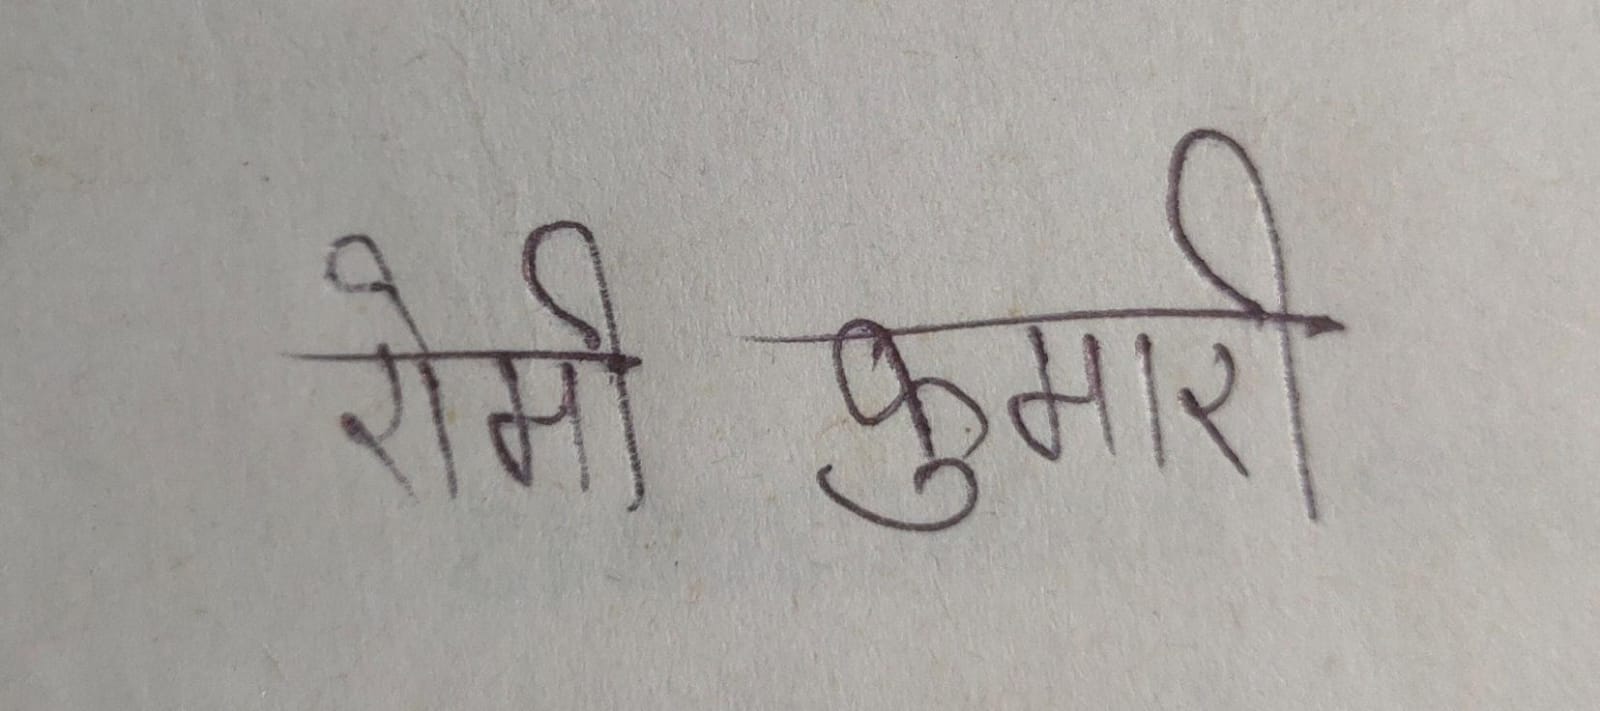 रोमी कुमारी